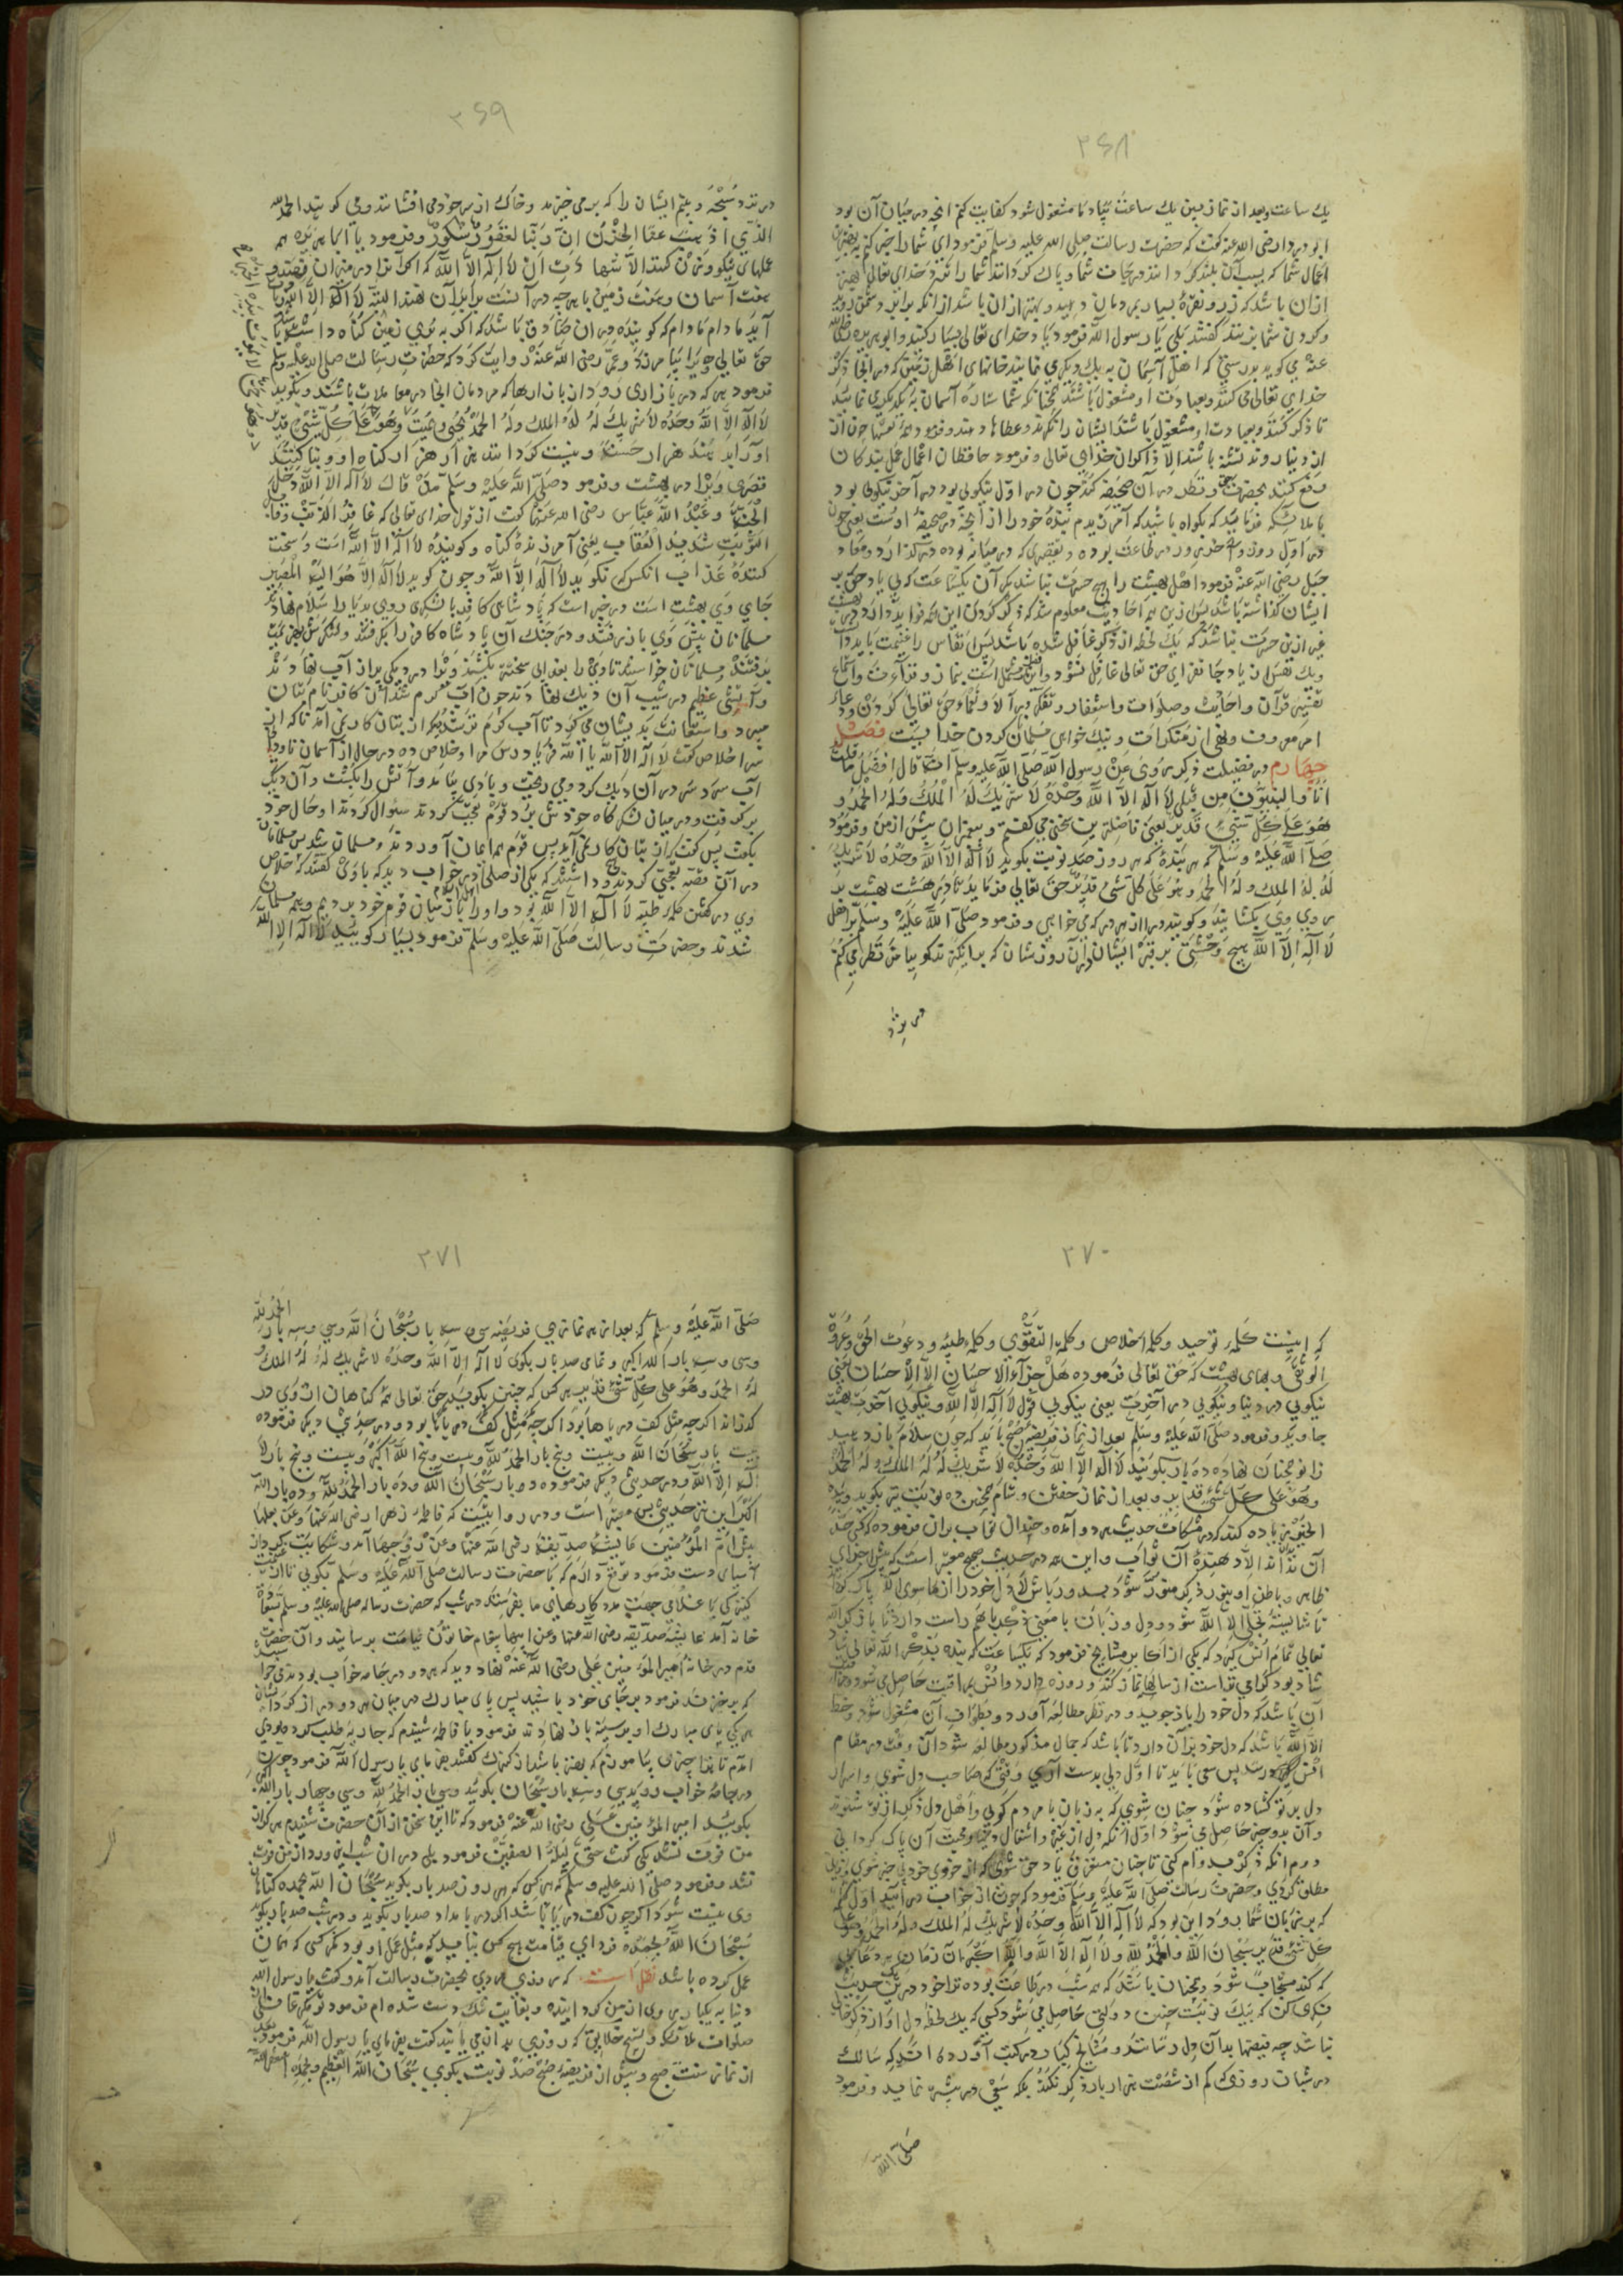 ۳۶۸
یك ساعت وبعد از نماز پسین یك ساعت بیاد ما مشغول شود كفایت كنم آنچه در میان آن بود
ابو دردا رضی الله عنه گفت كه حضرت رسالت صلی الله علیه وسلم فرمود ای شما را خبر كنم به بهترین
اعمال شما كه بسبب آن بلند گرداند درجات شما و پاك گرداند شما را نزد خدای تعالی بهتر
ازان باشد كه زر و نقره بسیار بمردمان دهید و بهتر ازان باشد از انكه برابر دشمن روید
وگردن شما بزنند گفتند بلی یا رسول الله فرمود یاد خدای تعالی بسیار كنید و ابو هریره رضی الله
عنه می گوید بدرستی كه اهل آسمان به یك دیگر می نمایند خانهای اهل زمین كه در انجا ذكر
خدای تعالی می كنند وبعبادت او مشغول باشند همچنانكه شما ستاره آسمان به یكدیگر می نمائید
تا ذكر كنند و بعبادت او مشغول باشند ایشان را نگرند و عطاها دهند و فرمود همه نفسها چون از
از دنیا روند تشنه باشند الا ذاكران خدای تعالی و فرمود حافظان اعمال عمل بندگان
رفع كنند بحضرت حق و نظر در آن صحیفه كند چون در اول نیكوئی بود و در آخر نیكوئی بود
با ملائكه فرماید كه گواه باشید كه آمرزیدم بنده خود را از آنچه در صحیفه اوست یعنی چون
در اول روز و آخر روز در طاعت بوده و تقصیری كه در میانه بوده درگذارد و معاذ
جبل رضی الله عنه فرمود اهل بهشت را هیچ حسرت نباشد مگر آن یكساعت كه بی یاد حق بر
ایشان گذاشته باشد پس ازین همه احادیث معلوم شد كه ذكر كردن این همه فواید دارد در بهشت
غیر ازین حسرت نباشد كه یك لحظه از ذكر غافل شده باشد پس انفاس را غنیمت باید داشت
ویك نفس از یاد جان فزای حق تعالی غافل نشود و این مشتمل است بنماز و قراءت واستماع
تفسیر قرآن واحادیث وصلوات واستغفار وتفكر در آلاء ونعماء حق تعالی كردن و دعا و
امر معروف و نهی از منكرات و نیك خواهی مسلمان كردن خدا بست فصل
چهارم در فضیلت ذكر مروی عن رسول الله صلی الله علیه وسلم انه قال افضل ما قلت
انا والنبیون من قبلی لا اله الا الله وحده لا شریك له له الملك وله الحمد و
هو علی كل شیء قدیر یعنی فاضلترین سخنی كه می گفتم و پیغمبران پیش از من و فرمود
صلی الله علیه وسلم كه هر بندهٔ كه هر روز صد نوبت بگوید لا اله الا الله وحده لا شریك
له له الملك وله الحمد وهو علی كل شیء قدیر حق تعالی فرماید تا در هشت بهشت بر
روی وی بگشایند و گویند درا از هر در كه می خواهی وفرمود صلی الله علیه وسلم بر اهل
لا اله الا الله هیچ وحشتی بر قبر ایشان در آن روز شان كه برانگیزند گوییا من نظر می كنم
در نزد
۳۶۹
در نزد سبحه و بینم ایشان را كه بر می خیزند و خاك از سر خود می افشانند و می گویند الحمد لله
الذی اذهب عنا الحزن ان ربنا لغفور شكور و فرمود یا ابا هریره هر
عملهای نیكو وزن كنند الا شهادت ان لا اله الا الله كه اگر آنرا در میزان نهند و
هفت آسمان و هفت زمین با هر چه در آنست برابر آن نهند البته لا اله الا الله زیاده
آید مادام كه گوینده در ان صادق باشد كه اگر به روی زمین گناه داشته باشد
حق تعالی ویرا بیامرزد و عمر رضی الله عنه روایت كرد كه حضرت رسالت صلی الله علیه وسلم
فرمود هر كه در بازاری رود از بازارها كه مردمان آنجا در معاملات باشند و بگوید
لا اله الا الله وحده لا شریك له له الملك وله الحمد یحیی ویمیت وهو علی كل شیء قدیر
او را بدهند هزار هزار حسنه و نیست گردانند هزار هزار گناه او و بنا كنند
قصری ویرا در بهشت و فرمود صلی الله علیه وسلم من قال لا اله الا الله دخل
الجنة و عبد الله عباس رضی الله عنهما گفت از قول خدای تعالی كه غافر الذنب وقابل
التوب شدید العقاب یعنی آمرزندهٔ گناه و گویندهٔ لا اله الا الله است و سخت
كنندهٔ عذاب آنكس كه نگوید لا اله الا الله و چون گوید لا اله الا هو الیه المصیر
جای وی بهشت است در خبر است كه پادشاهی كافر با لشكری روی به دیار اسلام نهاد و
مسلمانان پیش وی باز رفتند و در جنگ آن پادشاه كافر را بگرفتند و لشكرش بهزیمت
برفتند و مسلمانان خواستند تا ویرا بعذابی سخت بكشند ویرا در دیگی پر از آب نهادند
و آتشی عظیم در شیب آن دیگ نهادند چون آب گرم شد آن كافر نام بتان
می برد واستعانت بدیشان می كرد تا آب گرم تر شد دید كه از بتان كار نمی آید ناگه از
سر اخلاص گفت لا اله الا الله یا الله فریاد رس مرا و خلاص ده در حال از آسمان ناودان
آب سرد در آن دیگ كرد و می ریخت و بادی بیامد و آتش را بكشت و آن دیگ
بر گرفت و در میان لشكرگاه خودش برد قوم تعجب كردند سئوال كردند او حال خود
بگفت پس گفت كه از بتان كار نمی آید پس قوم ایمان آوردند و مسلمان شدند پس مسلمانان
در آن قصه تعجب كردند و دانستند كه یكی از صلحا در خواب دید كه با وی گفتند كه خلاص
وی در گفتن كلمه طیبه لا اله الا الله بود و او را باز میان قوم خود بردیم و همه مسلمان
شدند و حضرت رسالت صلی الله علیه وسلم فرمود بسیار گویید لا اله الا الله
۳۷۰
كه اینست كلمه توحید وكلمه اخلاص وكلمة التقوی وكلمه طیبه و دعوت الحق وعروة
الوثقی و بهای بهشت كه حق تعالی فرموده هل جزاء الاحسان الا الاحسان یعنی
نیكویی در دنیا و نیكویی در آخرت یعنی نیكویی قول لا اله الا الله و نیكویی آخرت بهشت
جاوید و فرمود صلی الله علیه وسلم بعد از نماز فریضه صبح باید كه چون سلام باز دهید
زانو همچنان نهاده ده بار بگویند لا اله الا الله وحده لا شریك له له الملك وله الحمد
وهو علی كل شیء قدیر و بعد از نماز خفتن وشام همچنین ده نوبت نیز بگوید و بیده
الخیر زیاده كند كه در مشكات حدیث هر دو آمده و چندان ثواب بران فرموده كه كسی حد
آن نداند الا دهندهٔ آن ثواب و این همه در حدیث صحیح معتبر است كه
ظاهر و باطن او بنور ذكر منور شود
تا شایستهٔ تجلی الا الله شود و دل و زبان با معنی ذكر با هم راست دارد تا با ذكر الله
تعالی تمام انس گیرد كه یكی از اكابر مشایخ فرمود كه یكساعت كه بنده بذكر الله تعالی
شاد بود گرامی تر است از سالها نماز كند و روزه دارد و انس بمراقبت حاصل می شود
آن باشد كه دل خود را باز جوید و در نظر مطالعه آورد و بطواف آن مشغول شود
الا الله باشد كه دل خود بران دارد تا باشد كه جمال مذكور مطالعه شود آن وقت در مقام
انس رسد پس سعی باید تا اول دلی بدست آری وقتی كه صاحب دل شوی و اسرار
دل بر تو گشاده شود چنان شوی كه به زبان با مردم گویی و اهل دل ذكر از تو شنوند
و آن بدو چیز حاصل می شود اول آنكه دل از غیر و اشغال دنیا و محبت آن پاك گردانی
دوم آنكه ذكر مدام كنی تا چنان مستغرق یاد حق شوی كه از خودی خود بی خبر شوی
مطلق گردی و حضرت رسالت صلی الله علیه وسلم فرمود كه چون از خواب درآیید اول كلمه
كه بر زبان شما برود این بود كه لا اله الا الله وحده لا شریك له له الملك وله الحمد وهو علی
كل شیء قدیر سبحان الله والحمد لله ولا اله الا الله والله اكبر آن زمان هر دعایی
كه كند مستجاب شود و همچنان باشد كه همه شب در طاعت بوده
فكری كن كه بیك نوبت چنین دولتی حاصل می شود كسی كه یك لحظه دل او از ذكر خالی
نباشد چه فیضها بدان دل رسانند و مشایخ كبار در كتب آورده اند كه سالك
در شبان روزی كم از شصت هزار بار ذكر نكند بلكه سعی در بیشتر نماید و فرمود
صلی الله
۳۷۱
صلی الله علیه وسلم كه بعد از هر نمازی فریضه سی و سه بار سبحان الله وسی وسه بار الحمد لله
وسی و سه بار الله اكبر و تمامی صد بار بگوی لا اله الا الله وحده لا شریك له له الملك و
له الحمد وهو علی كل شیء قدیر هر كس كه چنین بگوید حق تعالی همه گناهان از وی در
گذراند اگر چه مثل كف دریاها بود اگر چه مثل كف دریاها بود و در حدیثی دیگر فرموده
بیست بار سبحان الله و بیست وپنج بار الحمد لله و بیست وپنج الله اكبر و بیست وپنج بار لا
اله الا الله و در حدیثی دیگر فرموده ده بار سبحان الله و ده بار الحمد لله و ده بار الله
اكبر این نیز حدیثی بس معتبر است و در روایتست كه فاطمه زهرا رضی الله عنها
پیش ام المؤمنین عایشه صدیقه رضی الله عنها آمد و شكایت كرد از
آسیای دست فرمود توقع دارم كه با حضرت رسالت صلی الله علیه وسلم بگویی تا از
كنیزكی یا غلامی جهت مدد كارهای ما بفرستد در شب كه حضرت رساله صلی الله علیه وسلم
خانه آمد عایشه صدیقه رضی الله عنها پیغام خاتون قیامت برسانید و آن حضرت
قدم در خانهٔ امیر المؤمنین علی رضی الله عنه نهاد دید كه هر دو در جامه خواب بودند می خواستند
كه بر خیزند فرمود بر جای خود باشید پس پای مبارك در میان هر دو دراز كرد
هر یكی پای مبارك او بر سینه باز نهادند فرمود یا فاطمه شنیدم كه جاریه طلب كردهٔ
آمدم تا ترا چیزی بیاموزم كه بهتر باشد از كنیزك گفتند بفرمای یا رسول الله فرمود چون
در جامهٔ خواب روید سی وسه بار سبحان الله بگوئید وسی وسه بار الحمد لله وسی وچهار بار الله اكبر
بگویید امیر المؤمنین علی رضی الله عنه فرمود كه تا این سخن از آن حضرت شنیدم هرگز از
من فوت نشد یكی گفت حتی لیلة الصفین فرمود بلی در ان شب این ورد از من فوت
نشد و فرمود صلی الله علیه وسلم كه هر كس كه هر روز صد بار بگوید سبحان الله وبحمده گناهان
وی نیست شود اگر چون كف دریا باشد اگر در بامداد صد بار بگوید و در شب صد بار بگوید
سبحان الله وبحمده فردای قیامت هیچ كس نیاید كه مثل عمل او بود مگر كسی كه همان
عمل كرده باشد نقل است كه مردی بحضرت رسالت آمد و گفت یا رسول الله
دنیا به یكبار روی از من گردانیده و بغایت تنگ دست شده ام فرمود تو مگر غافلی از
صلوات ملائكه و تسبیح خلایق كه روزی بدان می یابند گفت بفرمای یا رسول الله فرمود بعد
از نماز سنت صبح و پیش از فریضهٔ صبح صد نوبت بگوی سبحان الله العظیم وبحمده استغفر الله